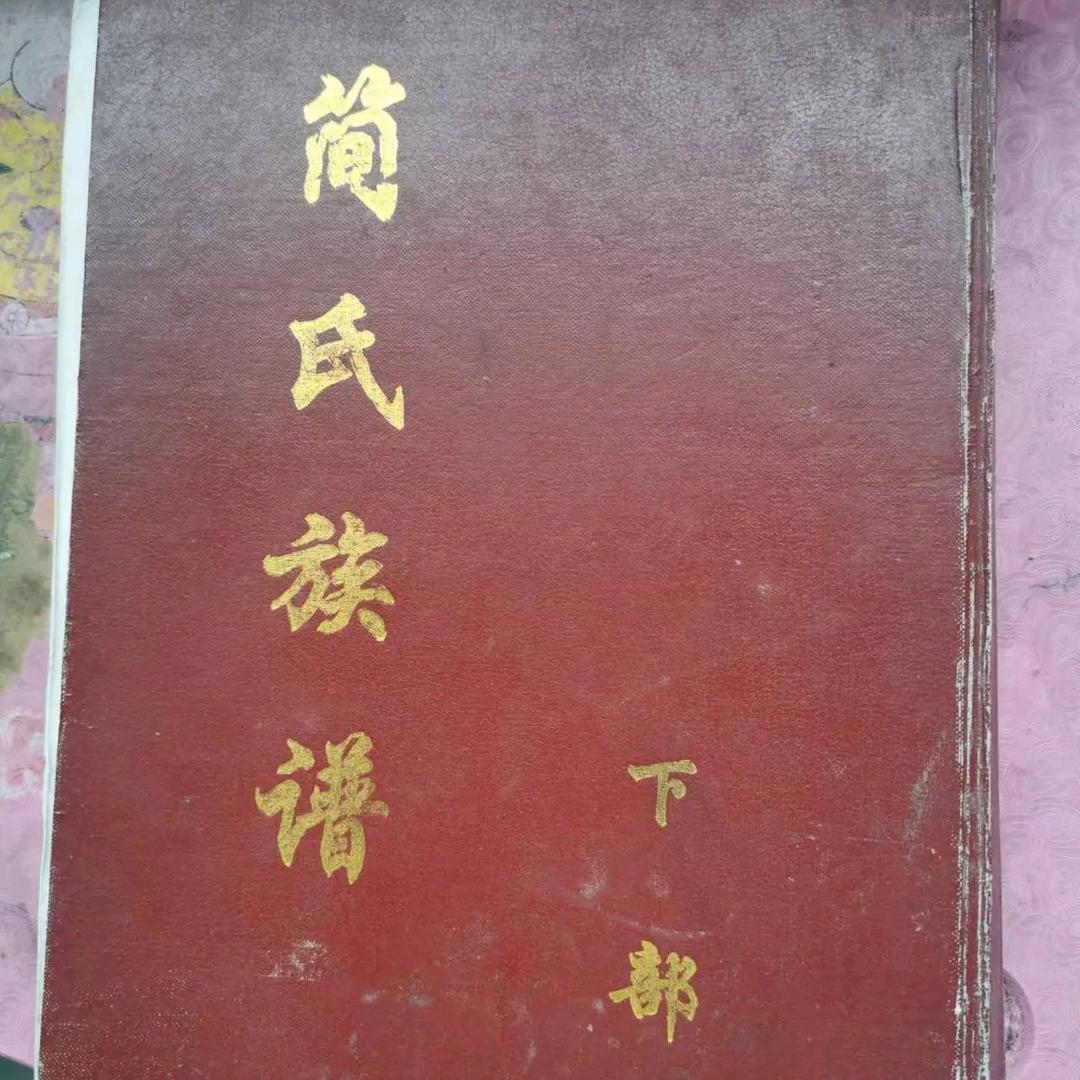 简氏族谱
下部